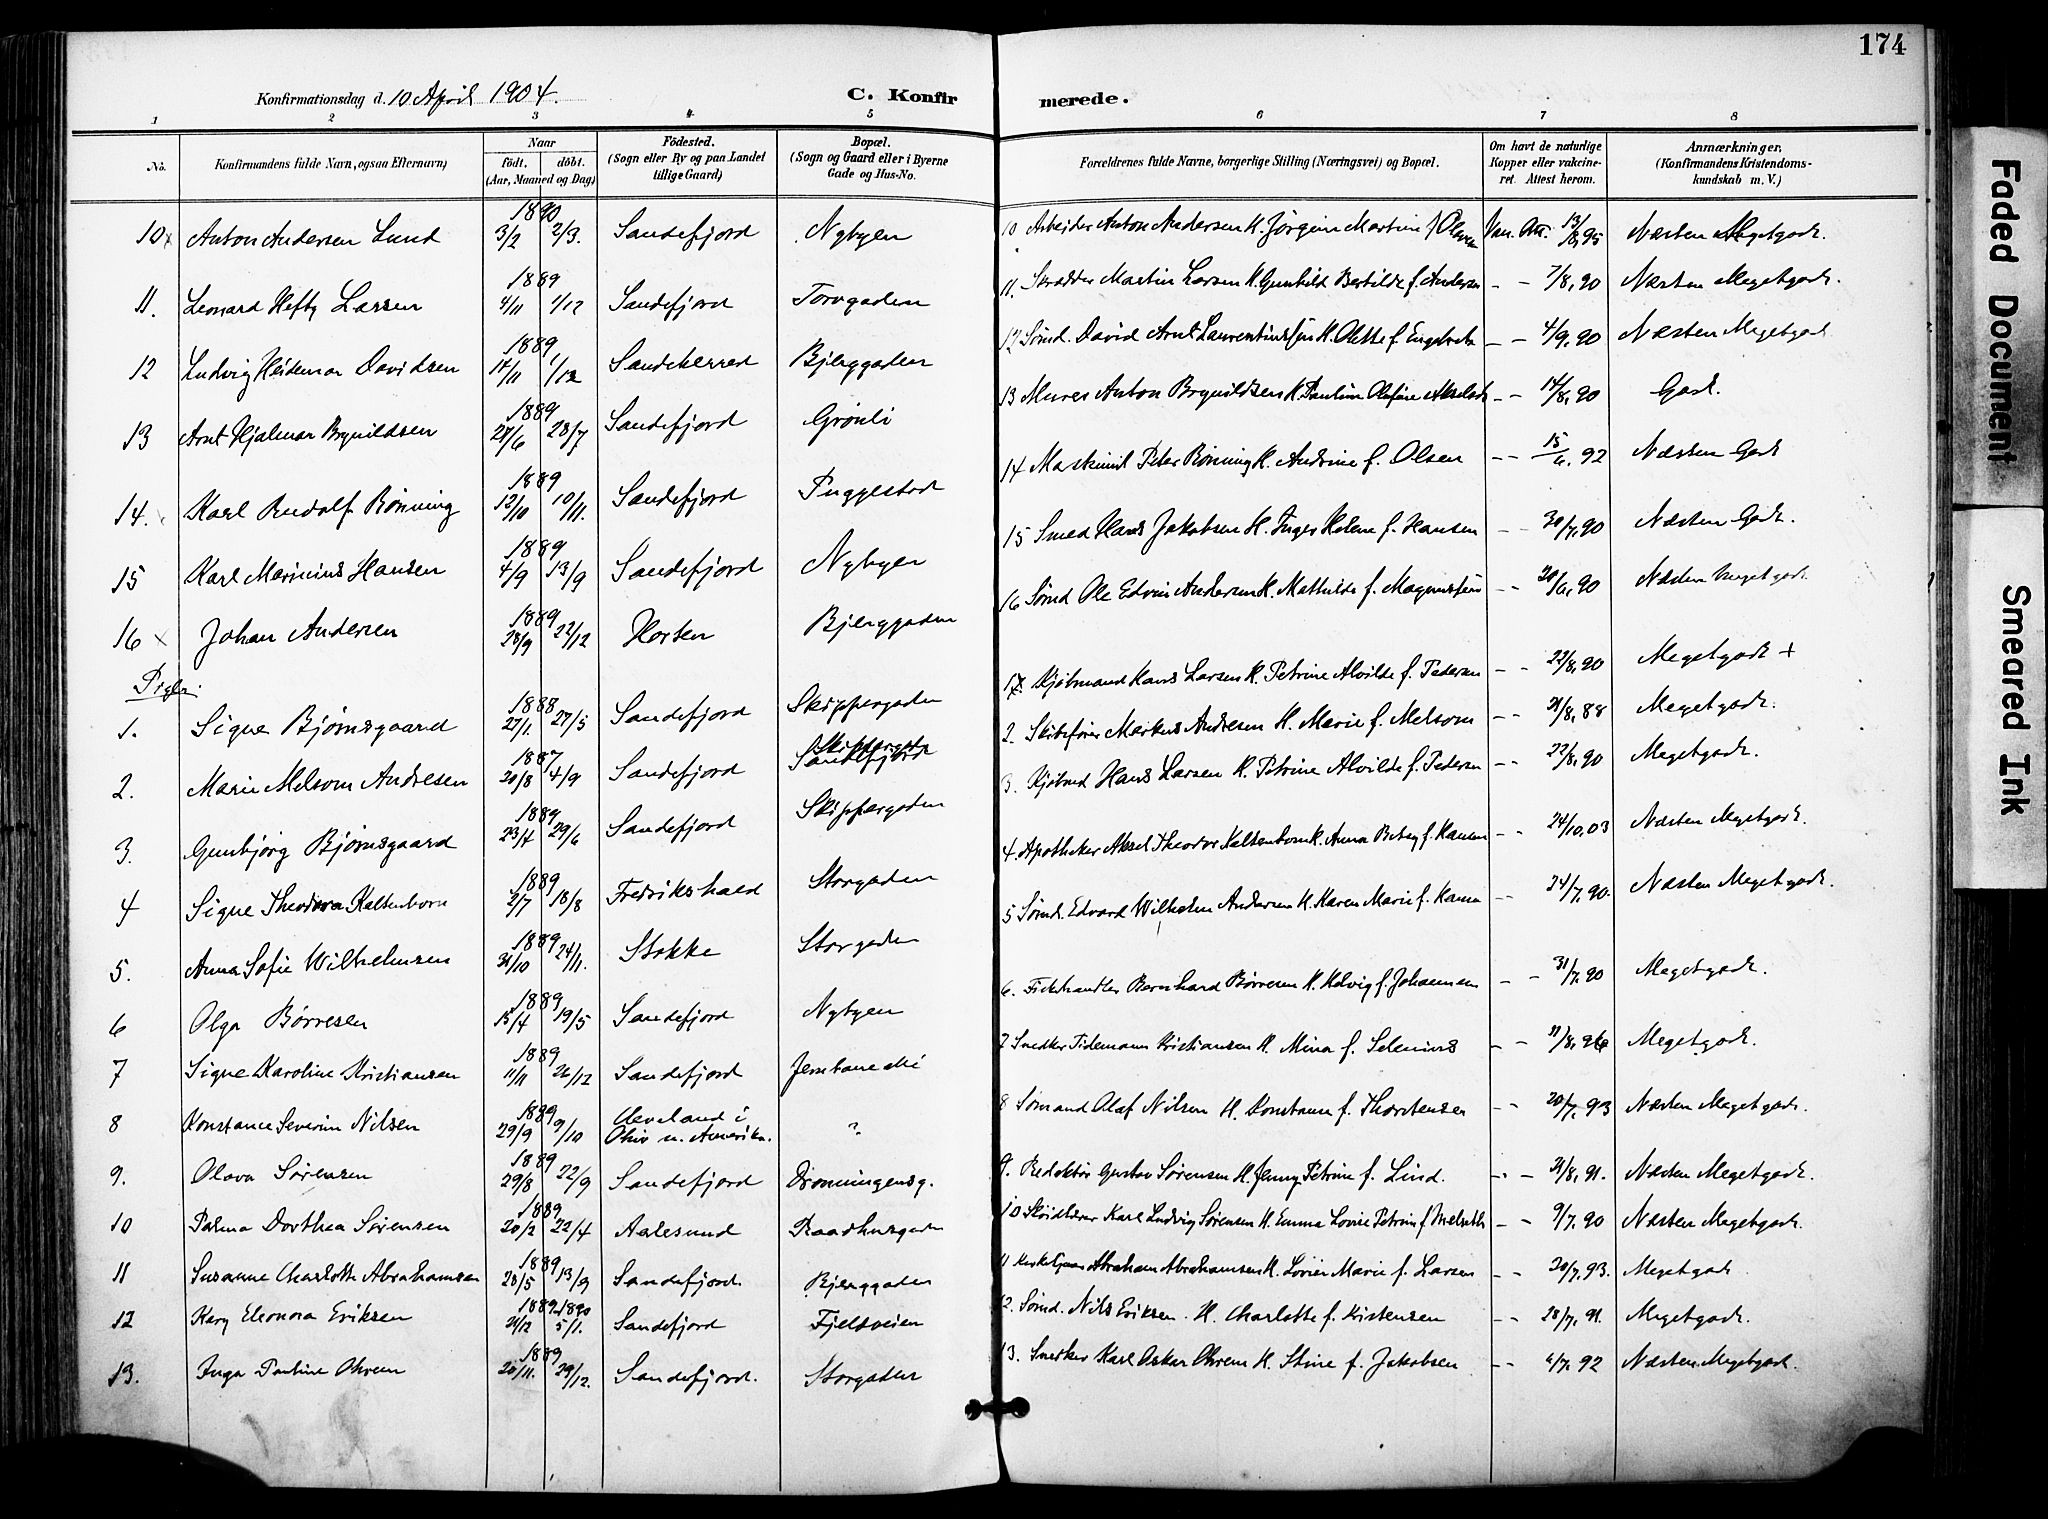 174
Konfirmationsdag d. 10 April 1904.
C. Konfirmerede.
1 2 3 4 5 6 7 8
No.
Konfirmandens fulde Navn, ogsaa Efternavn)
Naar
födt. döbt.
(Aar, Maaned og Dag)
Födested.
(Sogn eller By og paa Landet
tillige Gaard)
Bopæl.
(Sogn og Gaard eller i Byerne
Gade og Hus-No.
Forældrenes fulde Navne, borgerlige Stilling (Næringsvei) og Bopæl.
Om havt de naturlige
Kopper eller vakcine-
ret. Attest herom.
Anmærkninger.
(Konfirmandens Kristendoms-
kundskab m. V.)
10 x Anton Andersen Lund 1890 3/2 2/3. Sandefjord Nybyen 10 Arbeider Anton Andersen H. Jörgine Martine f Olsen Vac. Att. 13/8, 95 Næsten Megetgodt.
11. Leonard Hefty Larsen 1889 4/11 1/12 Sandefjord Torvgaden 11. Skrædder Martin Larsen H. Gunhild Bertilde f. Andersen - - 7/8, 90 Næsten Megetgodt.
12 Ludvig Heidemar Davidsen 1889 14/11 1/12 Sandeherred Bjerggaden 12 Sömd. David Arnt Laurentiussen H. Olette f. - - 4/9, 90 Næsten Megetgod
13 Arnt Hjalmar Brynildsen 1889 28/7 Sandefjord Grönli 13 Murer Anton Brynildsen H. Pauline Olefine - - 14/8, 90 Godt.
14. Karl Rudolf Rönning 1889 12/10 10/11. Sandefjord Puggestad 14 Maskinist Peter Rönning H. Andrine f. Olsen - - 15/6, 92 Næsten Godt
15 Karl Marinius Hansen 1889 4/9 13/9 Sandefjord Nybyen 15 Smed Hans Jakobsen H. Inger Helene f. Hansen - - 30/7, 90 Næsten Godt.
16 x Johan Andersen 1889 23/9 22/12 Horten Bjerggaden 16 Sömd Ole Edvin Andersen H. Mathilde f. Magnussen - - 20/6, 90 Næsten Megetgodt
Piger.
1. Signe Björnsgaard 1888 27/1. 27/5 Sandefjord Skippergaden 1 x. Kjöbmand Hans Larsen H. Petrine Alvilde f. Pedersen - - 22/8, 90 Megetgodt +
2. Marie Melsom Andresen 1887 20/8 4/9 Sandefjord Skippergade Sandefjord 2. Skibsförer Markus Andresen H. Marie f. Melsom - - 21/8, 88 Megetgodt.
3. Gunbjörg Bjørnsgaard 1889 23/4 29/6 Sandefjord Skippergaden 3. Kjöbmd Hans Larsen H. Petrine Alvilde f. Pedersen - - 22/8, 90 Megetgodt.
4 Signe Theodora Kaltenborn 1889 2/7 18/8 Fredrikshald Storgaden 4. Apotheker Aksel Theodor Kaltenborn H. Anna Betsy f. Hansen - - 24/10, 03 Næsten Megetgodt.
5. Anna Sofie Wilhelmsen 1889 31/10 24/11. Stokke Storgaden 5 Sömd. Edvard Wilhelm Andersen H. Karen Marie f. - - 24/7, 90. Næsten Megetgodt.
6 Olga Börresen 1889 15/4 19/5 Sandefjord Nybyen 6. Fiskehandler Bernhard Börresen H. Hedvig f. Johannesen - - 31/7, 90 Megetgodt.
7 Signe Karoline Kristiansen 1889 11/11 26/12 Sandefjord Jernbane allé 7 Snedker Tidemann Kristiansen H. Mina f. Selenius - - 11/8, 96 Megetgodt.
8 Konstance Severine Nilsen 1889 29/9 9/10 Cleveland i Ohio n. Amerika. ? 8 Sömand Olaf Nilsen H. Konstanse f. Thorstensen - - 20/7, 93 Næsten Megetgodt.
9. Olava Sørensen 1889 29/8 22/9 Sandefjord Dronningensg. 9. Redaktör Gustav Sørensen H. Jenny Petrine f. Lind. - - 21/8, 91. Næsten Megetgodt.
10 Palma Dorthea Sørensen 1889 20/2 22/4 Aalesund Raadhusgaden 10 Karl Ludvig Sørensen H. Emma Lovise Petrine f - - 9/7, 90 Næsten Megetgodt.
11 Susanne Charlotte Abrahamsen 1889 23/5 13/9 Sandefjord. Bjerggaden 11 Abraham Abrahamsen H. Lovise Marie f. Larsen - - 20/7, 93. Megetgodt
12 Kary Eleonora Eriksen 1889 21/12 1890 5/1. Sandefjord Fjeldveien 12. Sömd. Nils Eriksen. H. Charlotte f. Kristensen - - 28/7, 91. Megetgodt.
13. Inga Pauline Ohren 1889 20/11. 29/12. Sandefjord. Storgaden 13. Snedker Karl Oskar Ohren H. Stine f. Jakobsen - - 6/7, 92 Næsten Megetgodt.
Faded Document
Smeared Ink